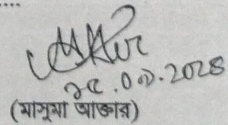 ২৫.০৩.২০২৪
(মাসুমা আক্তার)